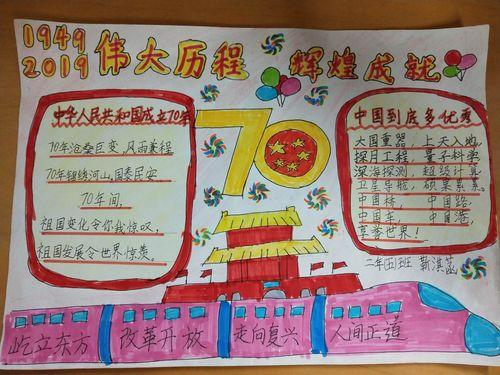 1949
2019
伟大历程 辉煌成就
中华人民共和国成立70年
70年沧桑巨变,风雨兼程
70年锦绣河山,国泰民安
70年间,
祖国变化令你我惊叹,
祖国发展令世界惊羡。
70
中国到底多优秀
大国重器, 上天入地,
探月工程, 量子科学,
深海探测, 超级计算,
卫星导航, 硕果累累。
中国桥, 中国路,
中国车, 中国港,
享誉世界!
二年四班 靳淇菡
屹立东方 改革开放 走向复兴 人间正道